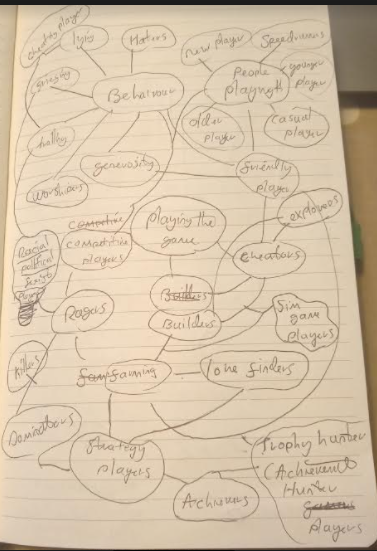 cheating player
lying
Haters
new player
Speedrunners
younger
player
People
playing it
Behaviour
older
player
casual
player
trolley
generosity
friendly
player
worshipers
explorers
Competitive
players
playing the
game
cheaters
Racial
political
sexist
players
Ragers
Builders
Sim
game
players
Killers
farming
finders
Dominators
Strategy
players
Achievers
Trophy hunter
(Achievement
Hunter
players